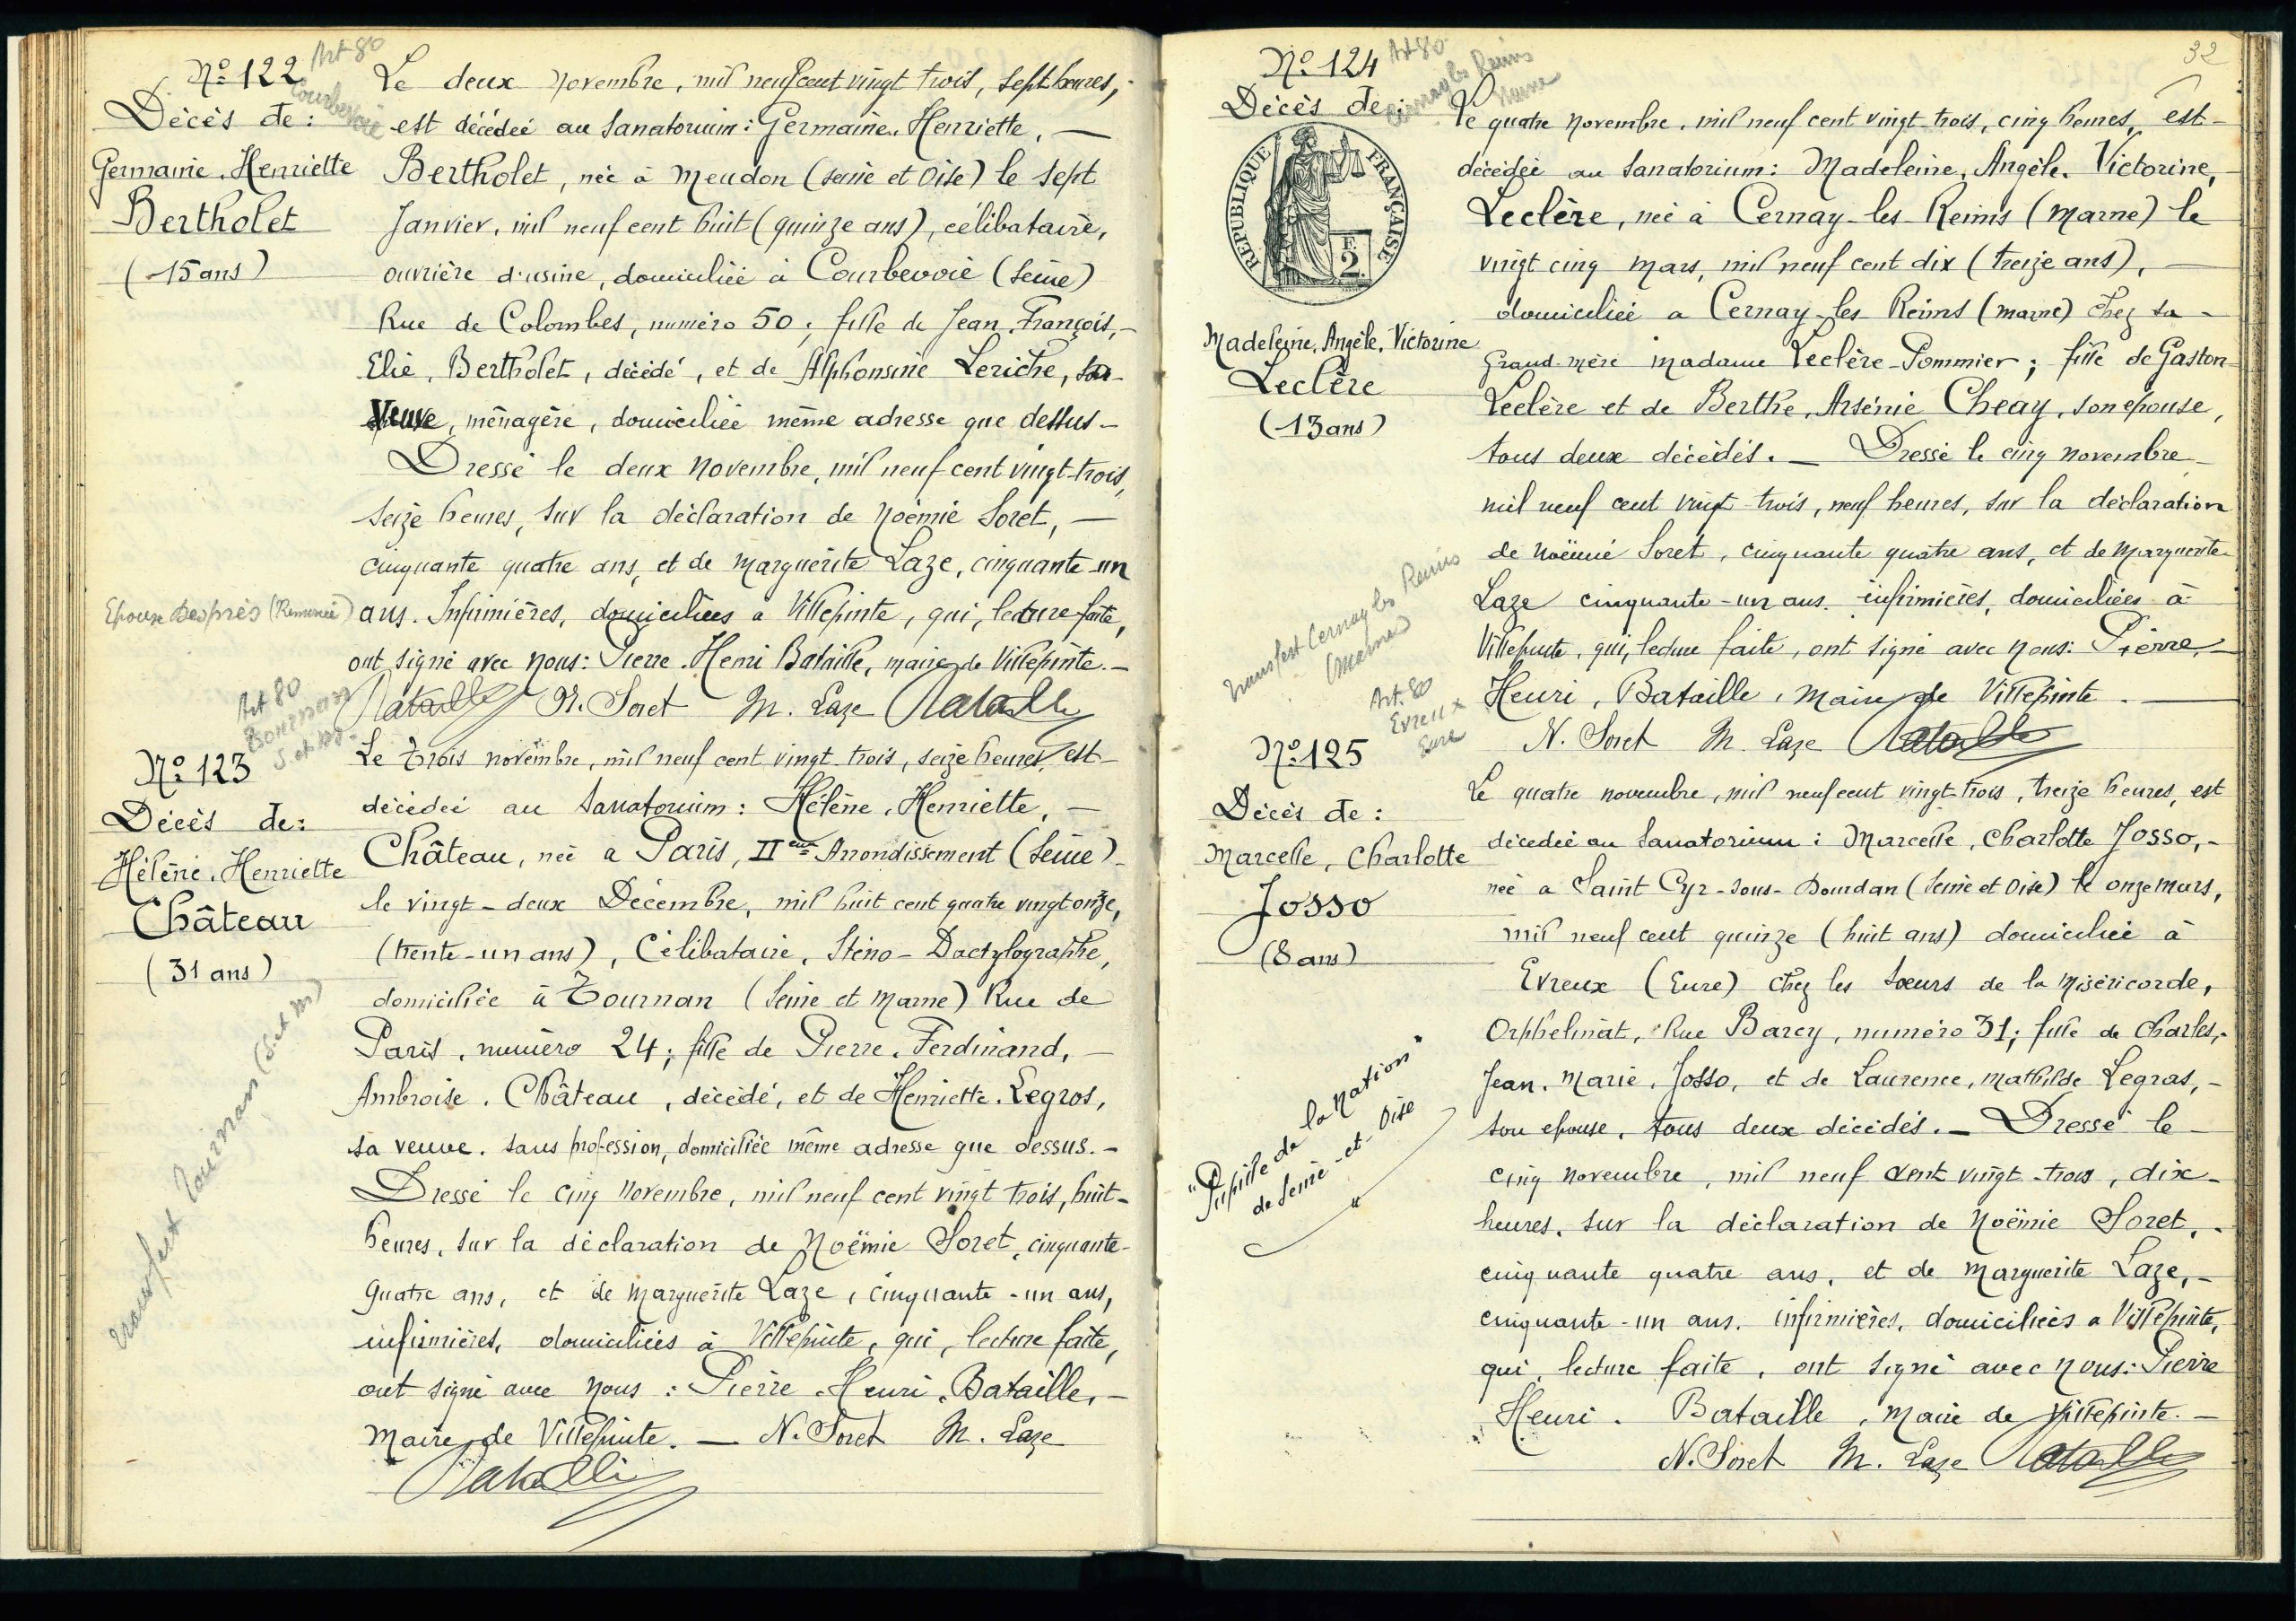 Nº 122
Art 80
Courbevoie
Décès de :
Germaine, Henriette
Bertholet
(15 ans)
Le deux Novembre, mil neuf cent vingt trois, sept heures,
est décédée au Sanatorium : Germaine, Henriette, —
Bertholet, née à Meudon (Seine et Oise) le sept
Janvier, mil neuf cent huit (quinze ans), célibataire,
ouvrière d'usine, domiciliée à Courbevoie (Seine)
Rue de Colombes, numéro 50 ; fille de Jean, François, -
Elie, Bertholet, décédé, et de Alphonsine Leriche, sa -
Veuve, ménagère, domiciliée même adresse que dessus -
Dressé le deux Novembre, mil neuf cent vingt-trois,
seize heures, sur la déclaration de Noémie Soret, —
cinquante quatre ans, et de Marguerite Laze, cinquante-un
Epouse Després (Remariée)
ans. Infirmières, domiciliées à Villepinte, qui, lecture faite,
ont signé avec Nous : Pierre. Henri Bataille, maire de Villepinte. -
Bataille N. Soret M. Laze Bataille
Art 80
Tournan
S. et M.
Nº 123
Décès de :
Hélène, Henriette
Château
(31 ans)
transfert Tournan (S. et M)
Le Trois novembre, mil neuf cent vingt-trois, seize heures, est -
décédée au Sanatorium : Hélène, Henriette, —
Château, née à Paris, IIème Arrondissement (Seine) -
le vingt-deux Décembre, mil huit cent quatre vingt onze,
(trente-un ans), Célibataire, Sténo-Dactylographe,
domiciliée à Tournan (Seine et Marne) Rue de
Paris, numéro 24 ; fille de Pierre, Ferdinand, —
Ambroise, Château, décédé, et de Henriette, Legros,
sa veuve. sans profession, domiciliée même adresse que dessus. -
Dressé le cinq Novembre, mil neuf cent vingt trois, huit -
heures, sur la déclaration de Noëmie Soret, cinquante -
quatre ans, et de Marguerite Laze, cinquante-un ans,
infirmières, domiciliées à Villepinte, qui, lecture faite,
ont signé avec Nous : Pierre, Henri, Bataille, -
Maire de Villepinte. — N. Soret M. Laze
Bataille
32
Nº 124
Art 80
Cernay les Reims
Marne
Décès de :
REPUBLIQUE FRANÇAISE
F.
2.
Madeleine, Angèle, Victorine
Leclère
(13 ans)
transfert Cernay les Reims
(Marne)
Le quatre Novembre, mil neuf cent vingt-trois, cinq heures, est -
décédée au Sanatorium : Madeleine, Angèle, Victorine, -
Leclère, née à Cernay-les-Reims (Marne) le
vingt cinq Mars, mil neuf cent dix (treize ans), —
domiciliée à Cernay-les Reims (marne) chez sa -
Grand-mère madame Leclère-Pommier ; fille de Gaston -
Leclère et de Berthe, Arsénie Cheay, son epouse,
tous deux décédés. — Dressé le cinq novembre -
mil neuf cent vingt-trois, neuf heures, sur la déclaration
de Noëmie Soret, cinquante quatre ans, et de Marguerite -
Laze cinquante-un ans. infirmières, domiciliées à -
Villepinte, qui, lecture faite, ont signé avec Nous : Pierre, -
Henri, Bataille, Maire de Villepinte. —
N. Soret M. Laze Bataille
Art. 80
Evreux
Eure
Nº 125
Décès de :
Marcelle, Charlotte
Josso
(8 ans)
"Pupille de la Nation"
de Seine-et-Oise
"
Le quatre novembre, mil neuf cent vingt-trois, treize heures, est
décédée au Sanatorium : Marcelle, Charlotte Josso, -
née à Saint Cyr-sous-Dourdan (Seine et Oise) le onze mars,
mil neuf cent quinze (huit ans) domiciliée à
Evreux (Eure) chez les Sœurs de la Miséricorde,
Orphelinat, Rue Barcy, numéro 31 ; fille de Charles, -
Jean, Marie, Josso, et de Laurence, Mathilde Legras, -
son epouse, tous deux décédés. — Dressé le -
cinq novembre, mil neuf cent vingt-trois, dix -
heures, sur la déclaration de Noëmie Soret, -
cinquante quatre ans, et de Marguerite Laze, -
cinquante-un ans. infirmières, domiciliées à Villepinte,
qui, lecture faite, ont signé avec Nous : Pierre
Henri. Bataille, Maire de Villepinte. —
N. Soret M. Laze Bataille